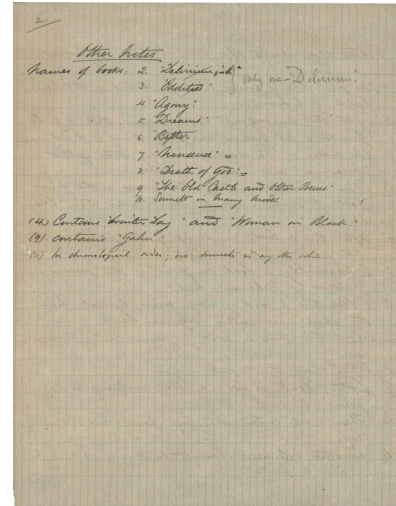 2.
Other Notes
Names of books. 2. "Delirium
only one - Delirium.
3. "Oddities"
4. "Agony"
5. "Dreams"
6. Better
7. "Nonsense" =
8. "Death of God" =
9. "The Old Castle and Other Poems"
10. Sonnets in Many Moods
(4) Contains "Winter Song" and "Woman in Black."
(9) contains
In chronological order; no sonnets in any other